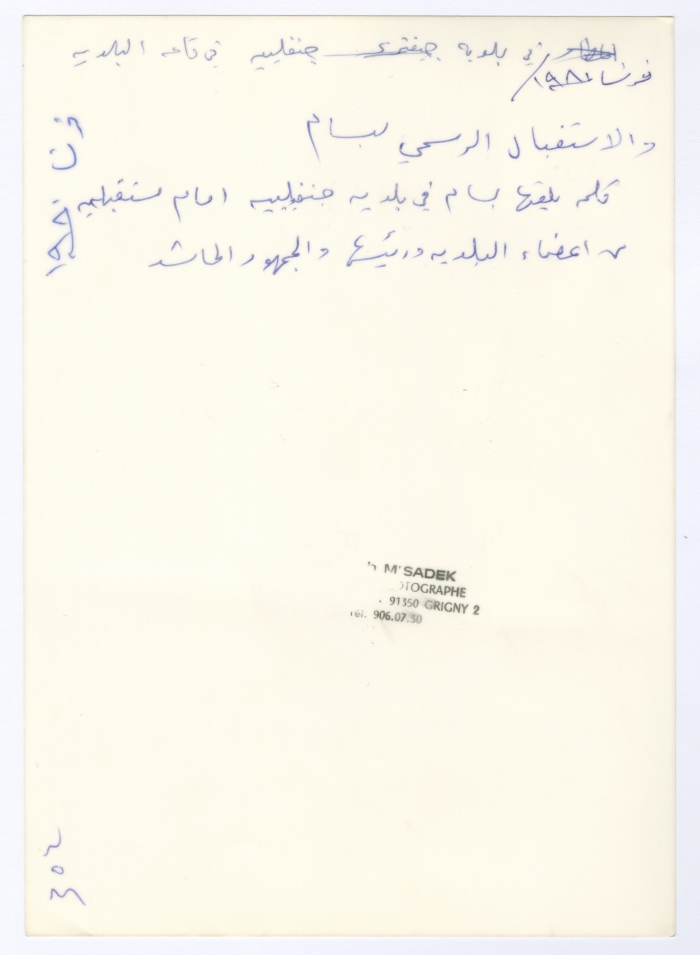 في بلدية جنفلييه في قاعة البلدية
فرنسا ١٩٨١
والاستقبال الرسمي لبسام
كلمة يلقيها بسام في بلدية جنفلييه امام مستقبليه
من اعضاء البلدية ورئيسها والجمهور الحاشد
M'SADEK
OTOGRAPHE
- 91350 GRIGNY 2
Tél. 906.07.50